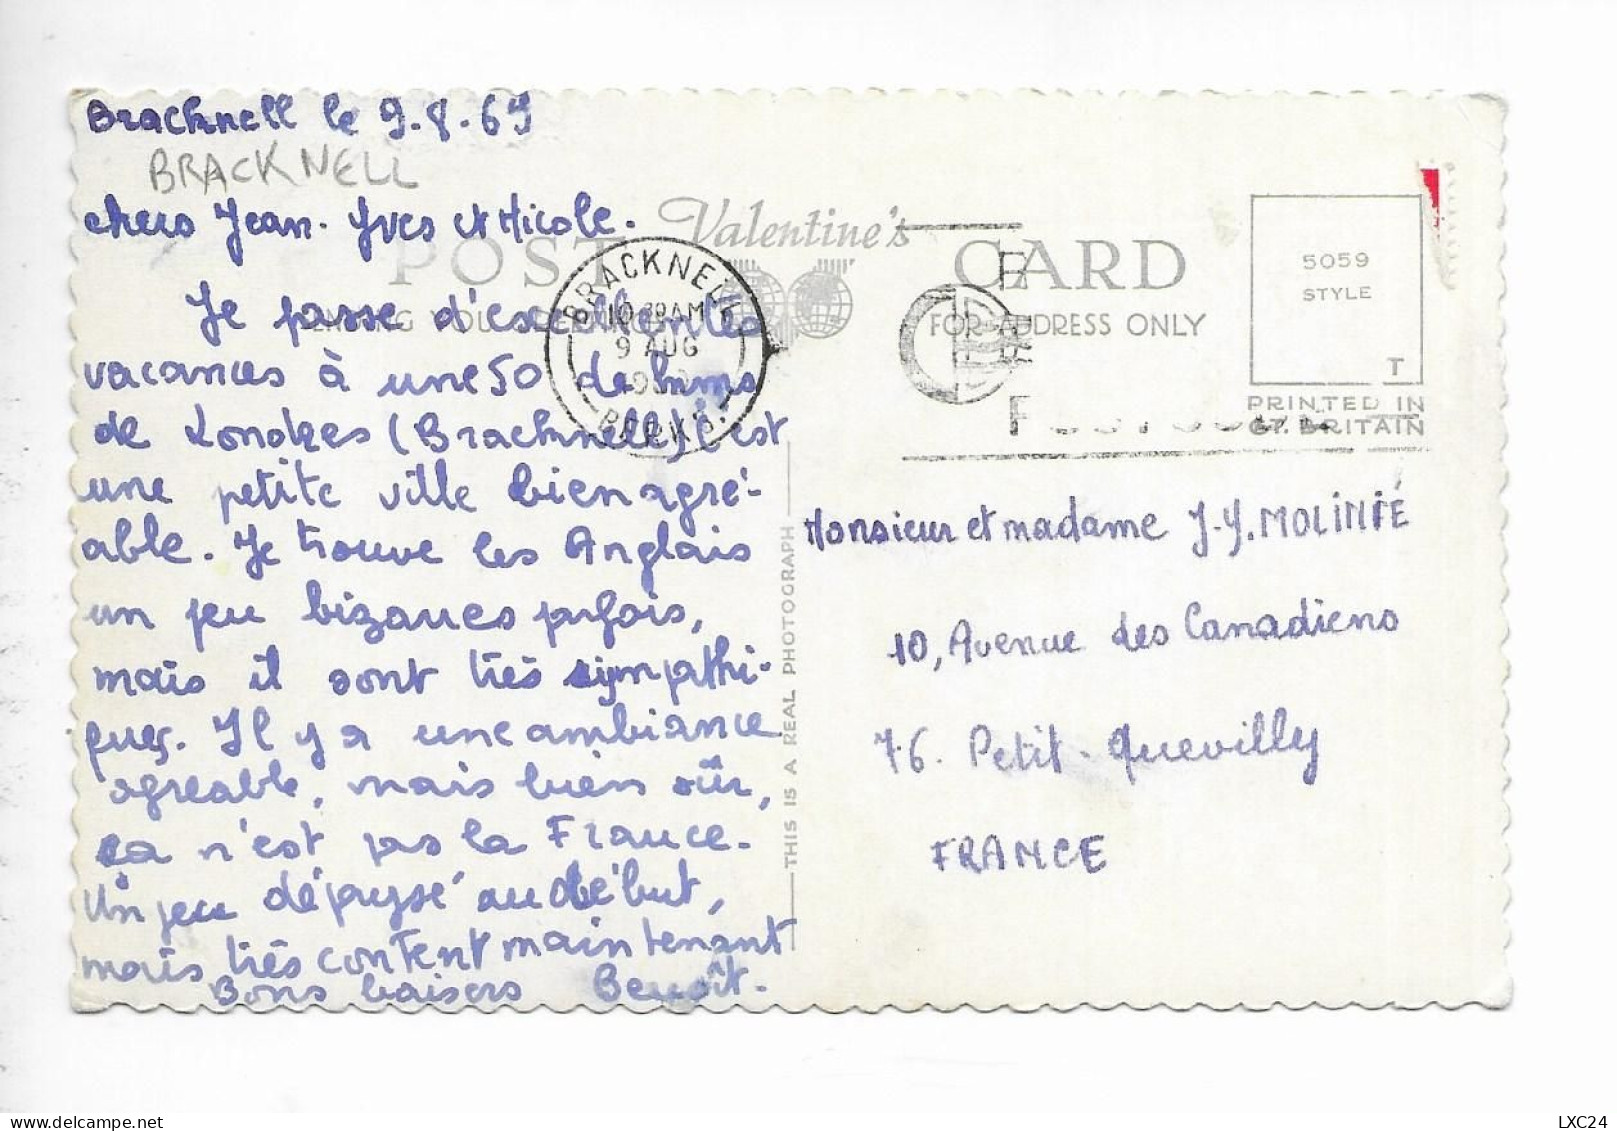 Bracknell le 9.8.69
BRACKNELL
chers Jean-Yves et Nicole.
Je passe d'excellentes
vacances à une 50 de kms
de Londres (Bracknell) c'est
une petite ville bien agré-
able. Je trouve les Anglais
un peu bizarres parfois,
mais il sont très sympathi-
ques. Il y a une ambiance
agreable, mais bien sûr,
ça n'est pas la France.
Un peu dépaysé au début,
mais très content maintenant
Bons baisers Benoît.
Valentine's
POST CARD
FOR ADDRESS ONLY
BRACKNELL
10 AM
9 AUG
BERKS.
5059
STYLE
T
PRINTED IN
GT. BRITAIN
THIS IS A REAL PHOTOGRAPH
Monsieur et madame J-Y. MOLINIÉ
10, Avenue des Canadiens
76. Petit-Quevilly
FRANCE
LXC24